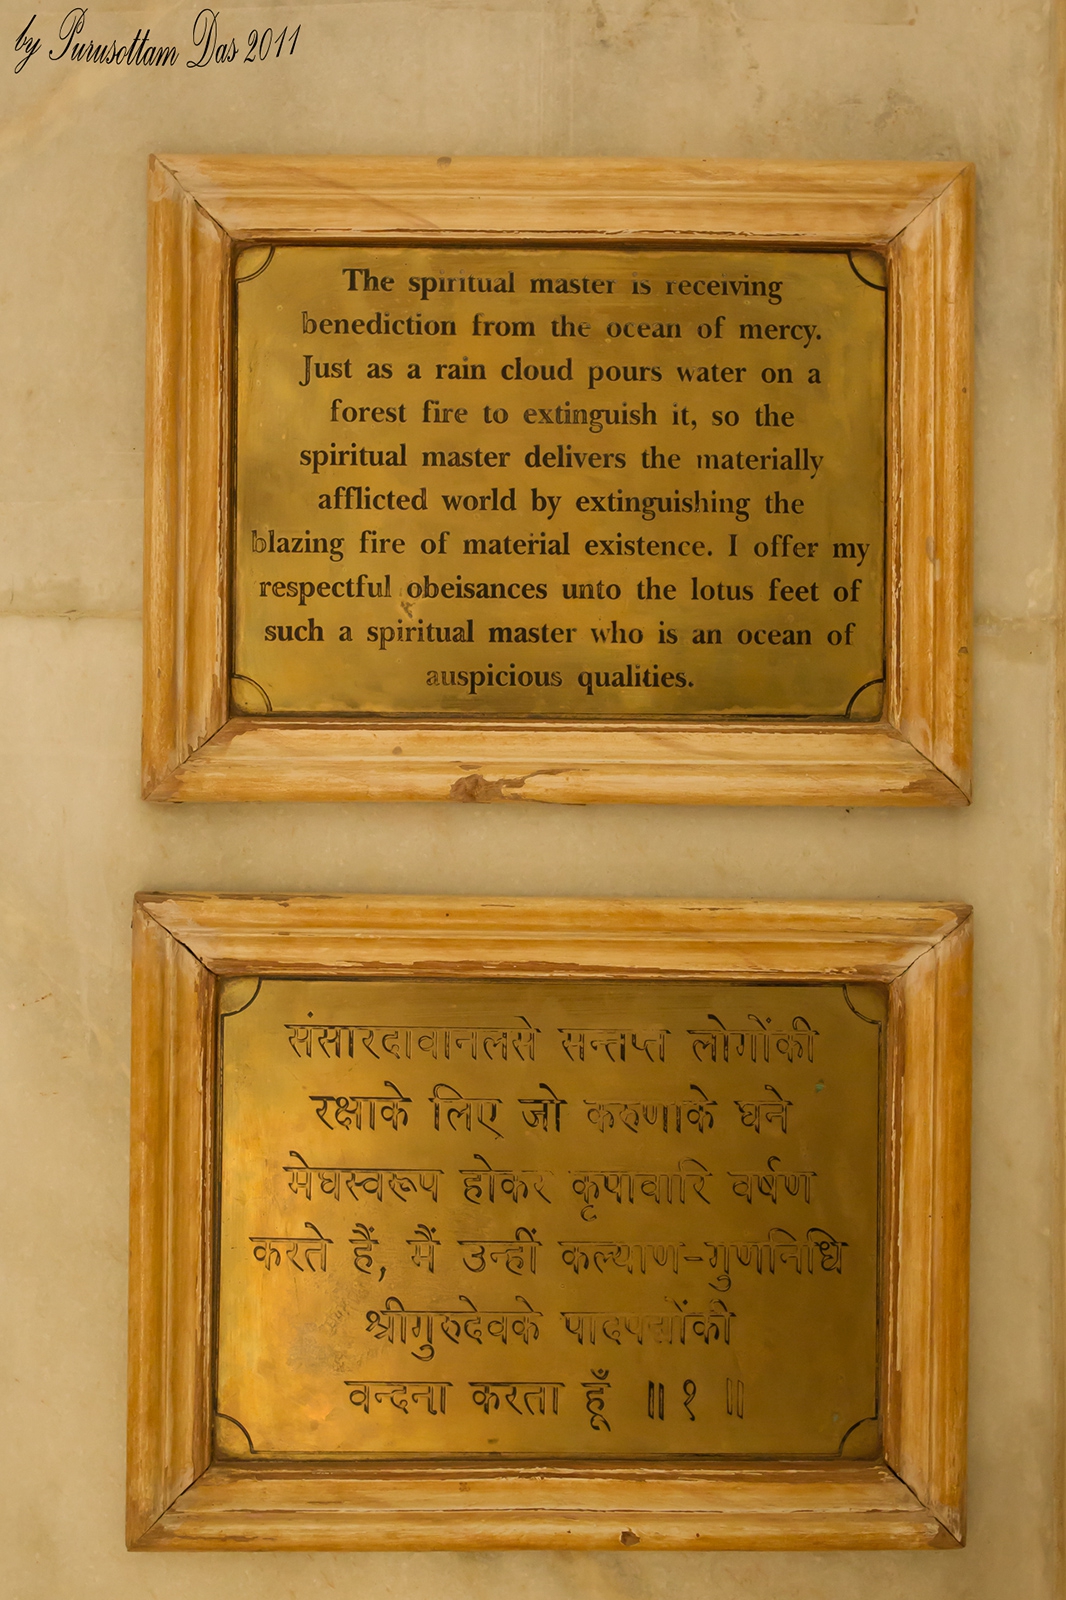 by Purusottam Das 2011
The spiritual master is receiving
benediction from the ocean of mercy.
Just as a rain cloud pours water on a
forest fire to extinguish it, so the
spiritual master delivers the materially
afflicted world by extinguishing the
blazing fire of material existence. I offer my
respectful obeisances unto the lotus feet of
such a spiritual master who is an ocean of
auspicious qualities.
संसारदावानलसे सन्तप्त लोगोंकी
रक्षाके लिए जो करुणाके घने
मेघस्वरूप होकर कृपावारि वर्षण
करते हैं, मैं उन्हीं कल्याण-गुणनिधि
श्रीगुरुदेवके पादपद्मोंकी
वन्दना करता हूँ ॥ १ ॥